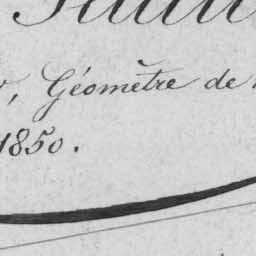 Géomètre de
1850.